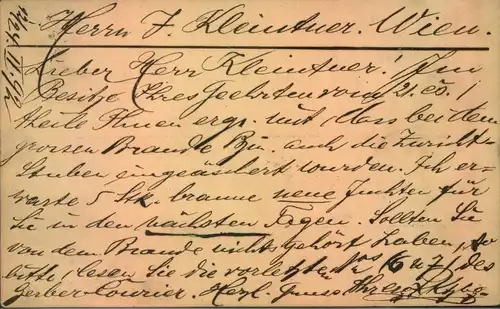 Herrn J. Kleintner. Wien.
Lieber Herr Kleintner! Im
Besitze Ihres Geehrten vom 21. co. /
theile Ihnen erg. mit dass bei dem
grossen Brande auch die Zuricht-
Stuben eingeäschert wurden. Ich er-
warte 5 Stk. braune neue Juchten für
Sie in den nächsten Tagen. Sollten Sie
von dem Brande nicht gehört haben, so
bitte, lesen Sie die vorletzten Nos 6 u 7 des
Gerber-Courier. Herzl. Gruss Ihres